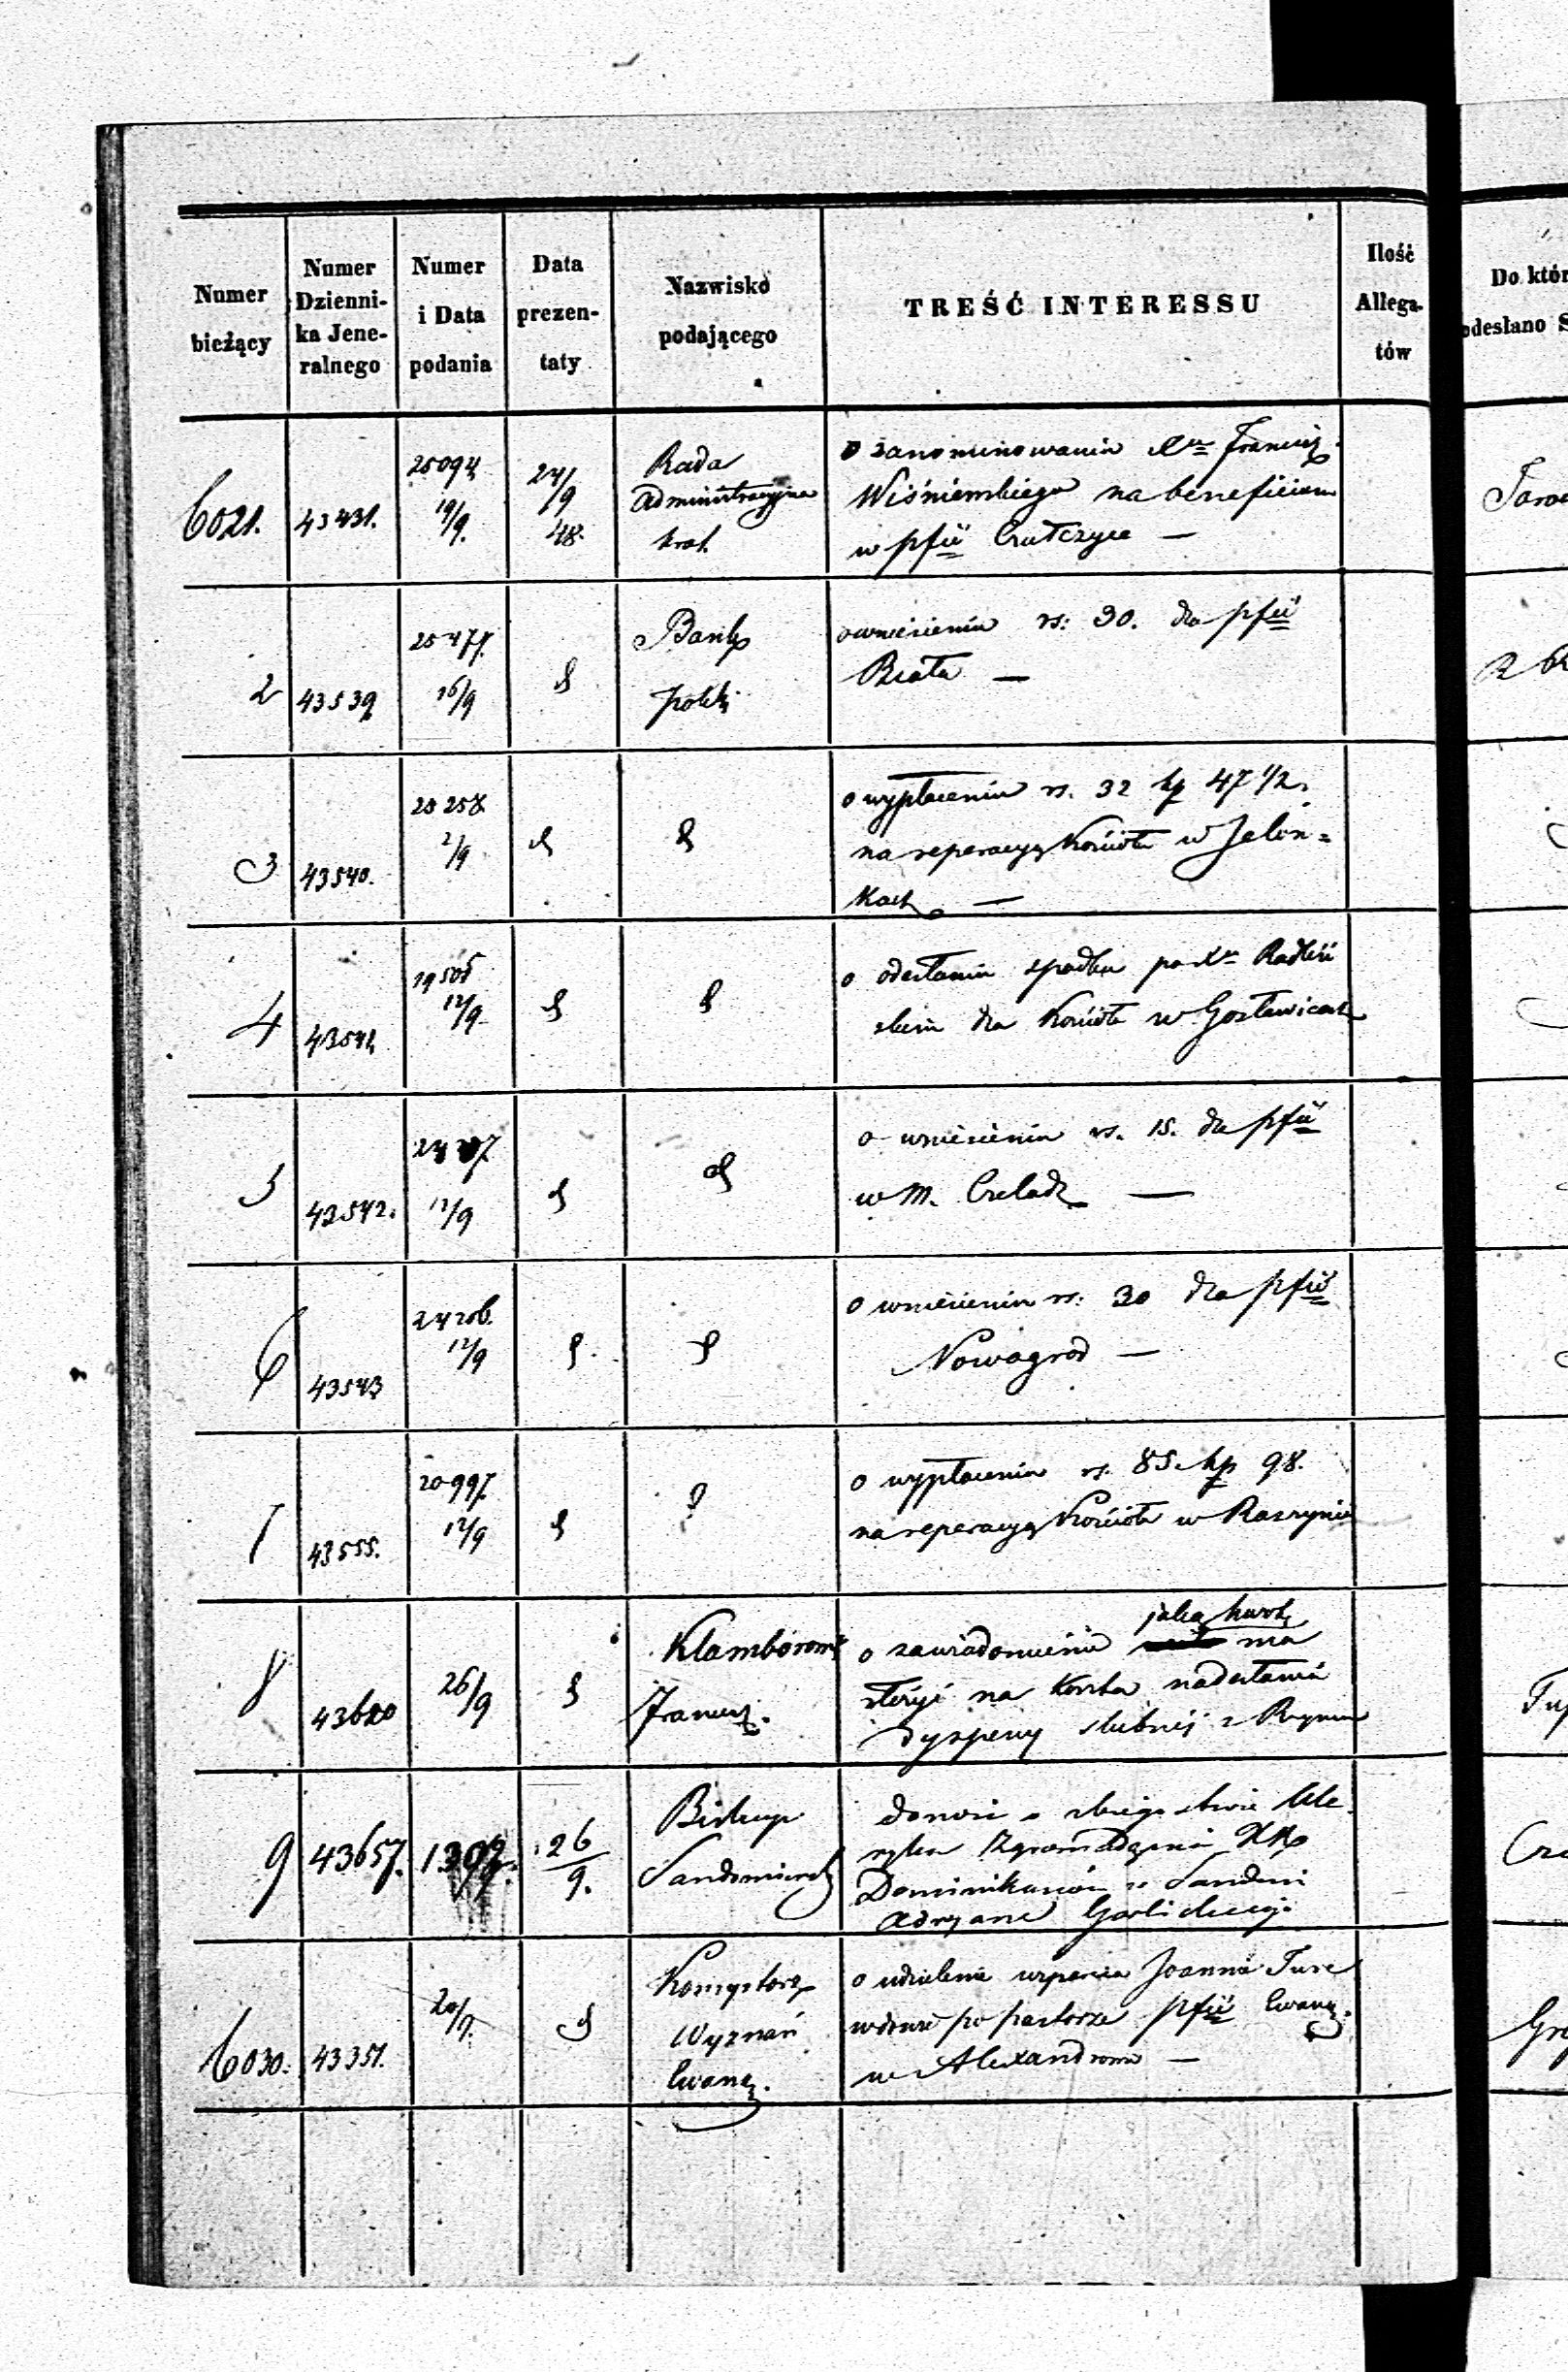 Numer bieżący
Numer Dziennika Jeneralnego
Numer i Data podania
Data prezentaty
Nazwisko podającego
TREŚĆ INTERESSU
Ilość Allegatów
Do któr
odesłano S
6021. 43431. 25094 19/9. 24/9 48. Rada Administracyjna Król.
o zanominowaniu Xa Francisz.
Wiśniewskiego na beneficium
w pfii
2 43539 16/9 Bank Polski
o wniesieniu rs: 30. dla pfii
Biała —
3 43540. 25258 2/9
o wypłaceniu rs. 32 kp 47 1/2
na reperacyą Kościoła w Jelon=
kach —
4 43541 19505 12/9
o odesłaniu spadku po Xu
dla Kościoła w Gosławicach
5 43542. 12/9
o wniesieniu rs. 15. dla pfii
w M. Czeladz —
6 43543 24206. 12/9
o wniesieniu rs: 30 dla pfii
Nowogrod —
7 43555. 20997. 12/9
o wypłacenie rs. 85. kp 98.
na reperacyą Kościoła w Raszynie
8 26/9 Francisz.
jaką kwotę
o zawiadomienie ma
złożyć na koszta nadesłania
dyspensy ślubnéj z Rzymu
9 43657. 26/9. Biskup Sandomierski
donosi o zbiegostwie Kle
ryka Zgromadzenia XX
Dominikanów w Sandom
Adryana Garlickiego
6030. 43351. 20/9. Konsystorz Wyznań Ewang.
o udzielenie wsparcia Joannie
wdowie po pastorze pfii Ewang.
w Alexandrowie —